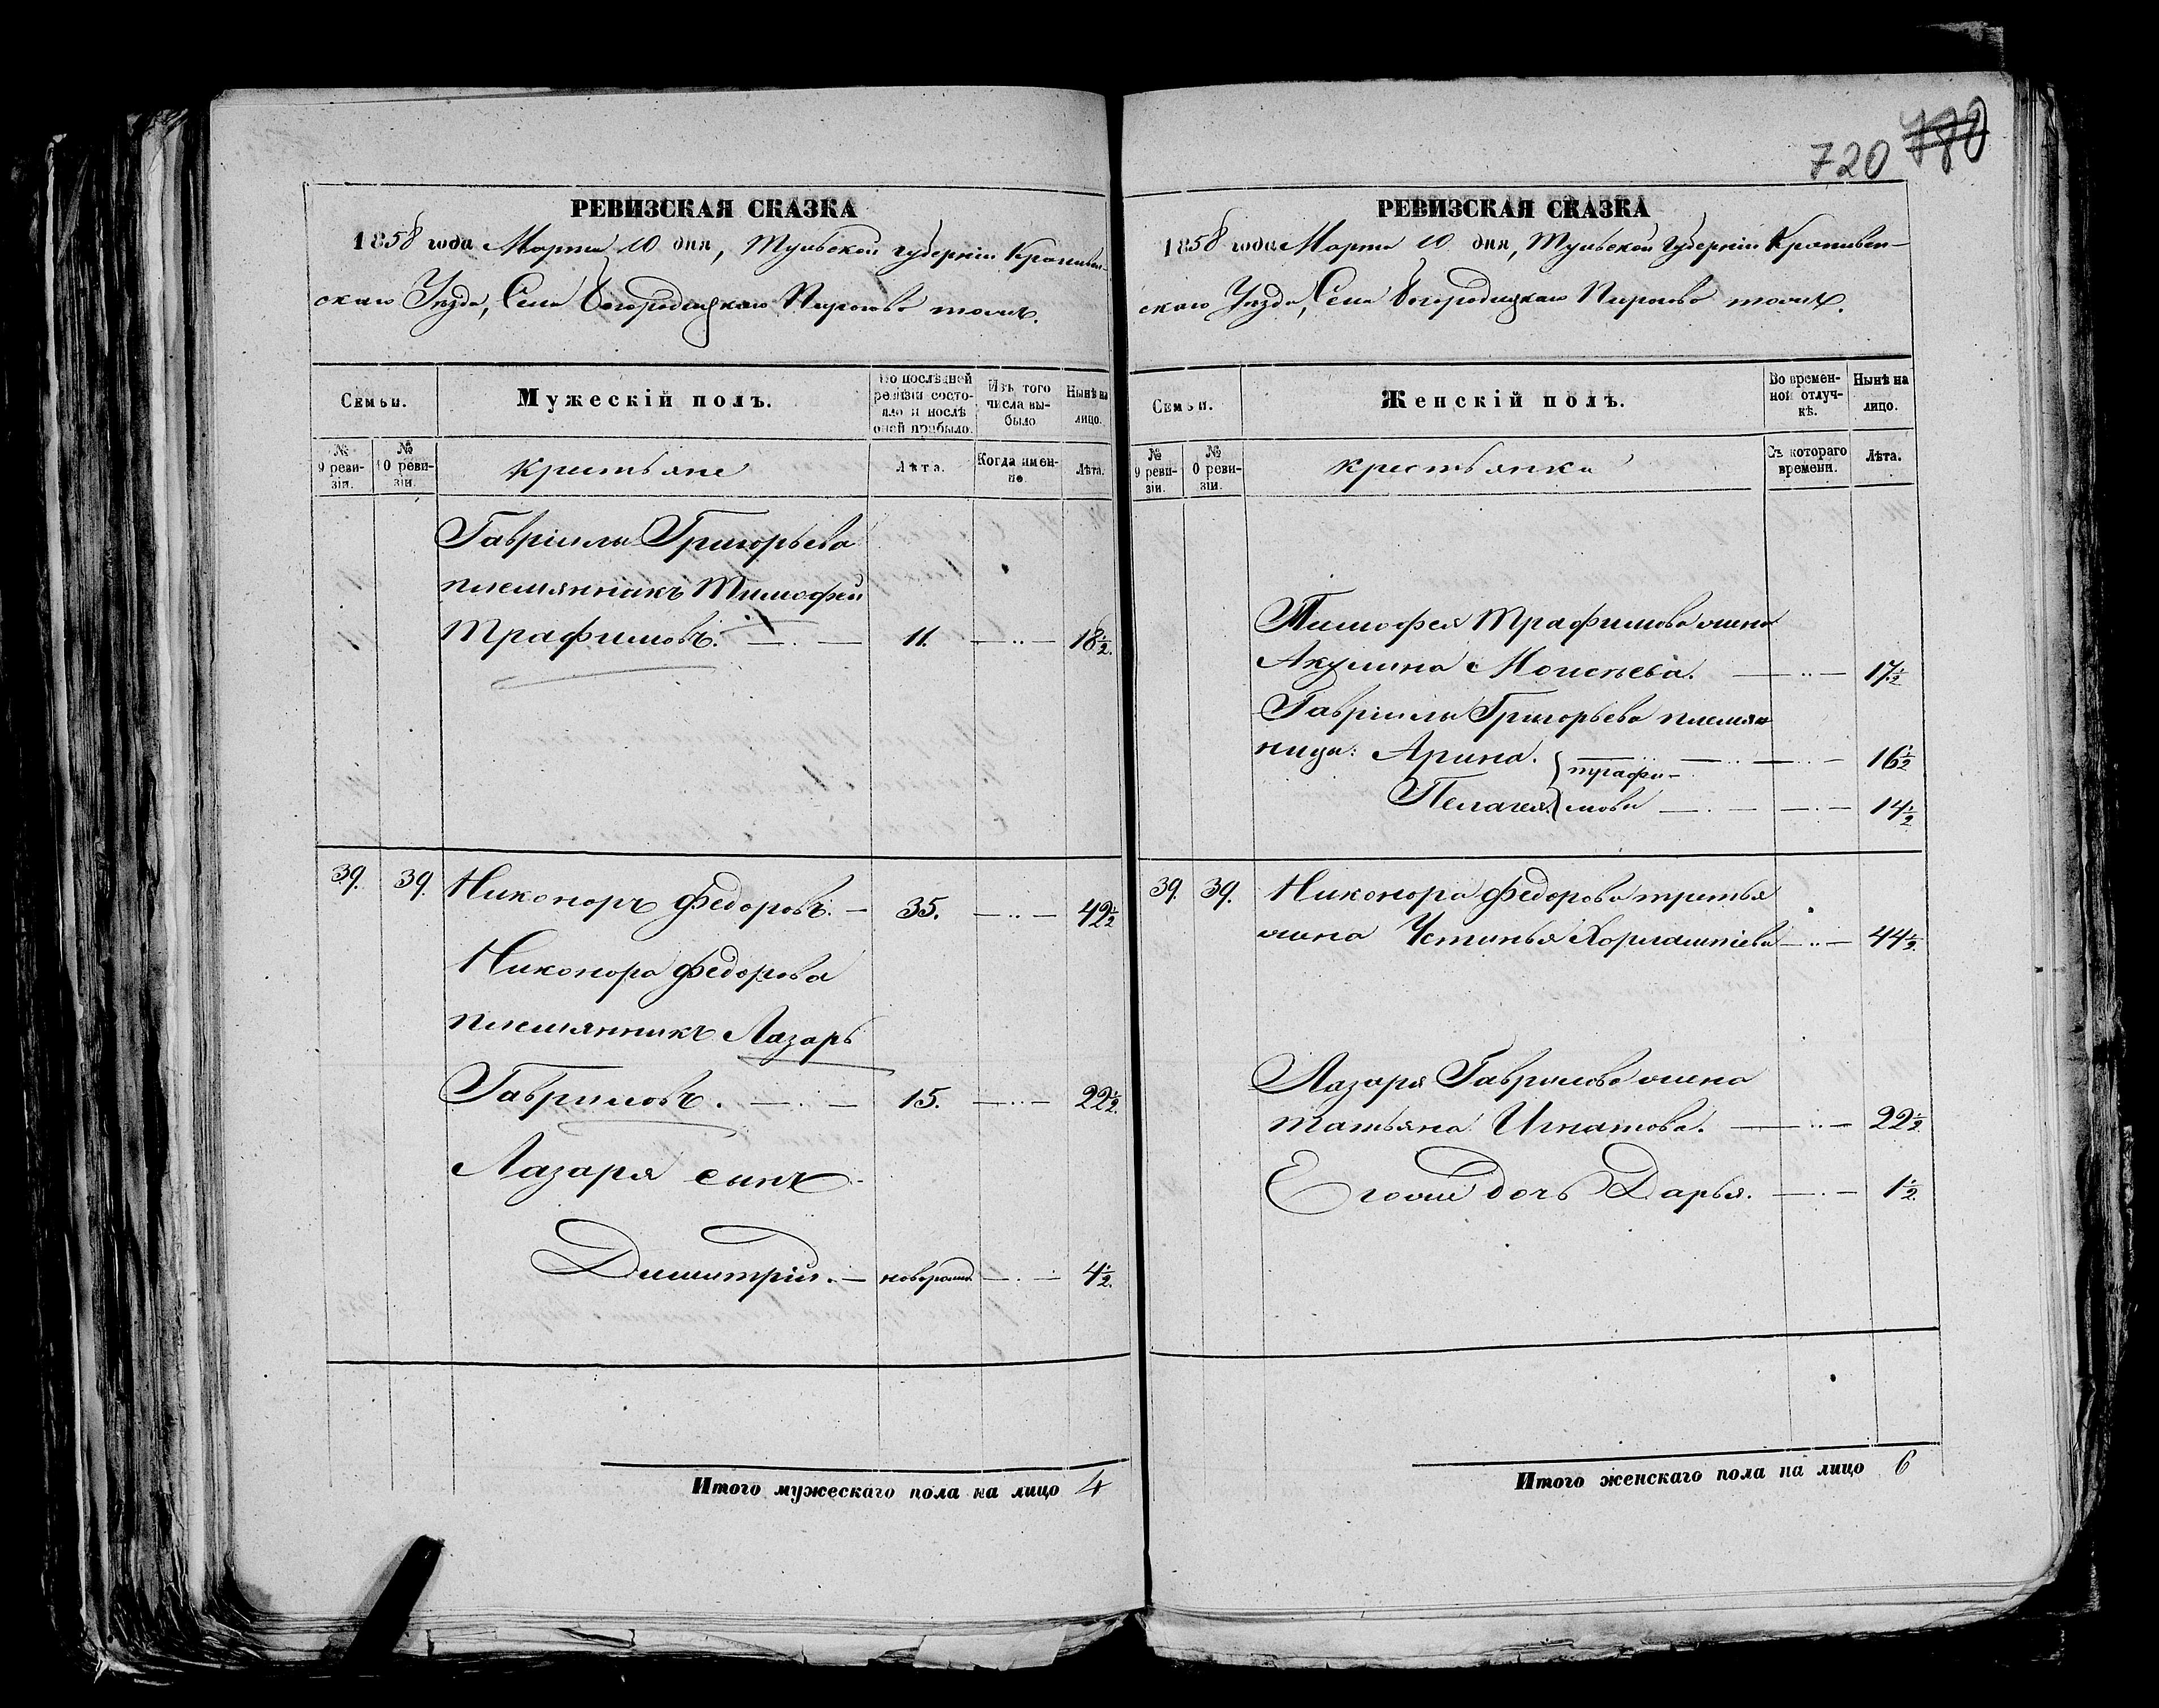 720 780
РЕВИЗСКАЯ СКАЗКА
1858 года Марта 10 дня, Тульской губернiи Крапивен-
скаго Уѣзда, Села Богородицкаго Пирогово тожъ.
Семьи.
Мужескiй полъ.
По послѣдней ревизiи состояло и послѣ оной прибыло.
Изъ того числа выбыло
Нынѣ на лицо.
№ 9 ревизiи.
№ 10 ревизiи.
крестьяне
Лѣта.
Когда именно.
Лѣта.
Гаврiилы Григорьева
племянникъ Тимофей
Трафимовъ. 11. 18½.
39. 39. Никоноръ Федоровъ. 35. 42½
Никонора Федорова
племянникъ Лазарь
Гавриловъ. 15. 22½.
Лазаря сынъ
Димитрiй. новорожд. 4½.
Итого мужескаго пола на лицо 4
РЕВИЗСКАЯ СКАЗКА
1858 года Марта 10 дня, Тульской губернiи Крапивен-
скаго Уѣзда, Села Богородицкаго Пирогово тожъ.
Семьи.
Женскiй полъ.
Во временной отлучкѣ.
Нынѣ на лицо.
№ 9 ревизiи.
№ 0 ревизiи.
крестьянки
Съ котораго времени.
Лѣта.
Тимофея Трафимова жена
Акулина Моисѣева. 17½
Гаврiилы Григорьева племян
ницы: Арина. } трафи- 16½
Пелагея. } мовы 14½
39. 39. Никонора Федорова третья
жена Устинья Харлампiева 44½.
Лазаря Гаврилова жена
татьяна Игнатова. 22½.
Егоже дочь Дарья. 1½.
Итого женскаго пола на лицо 6